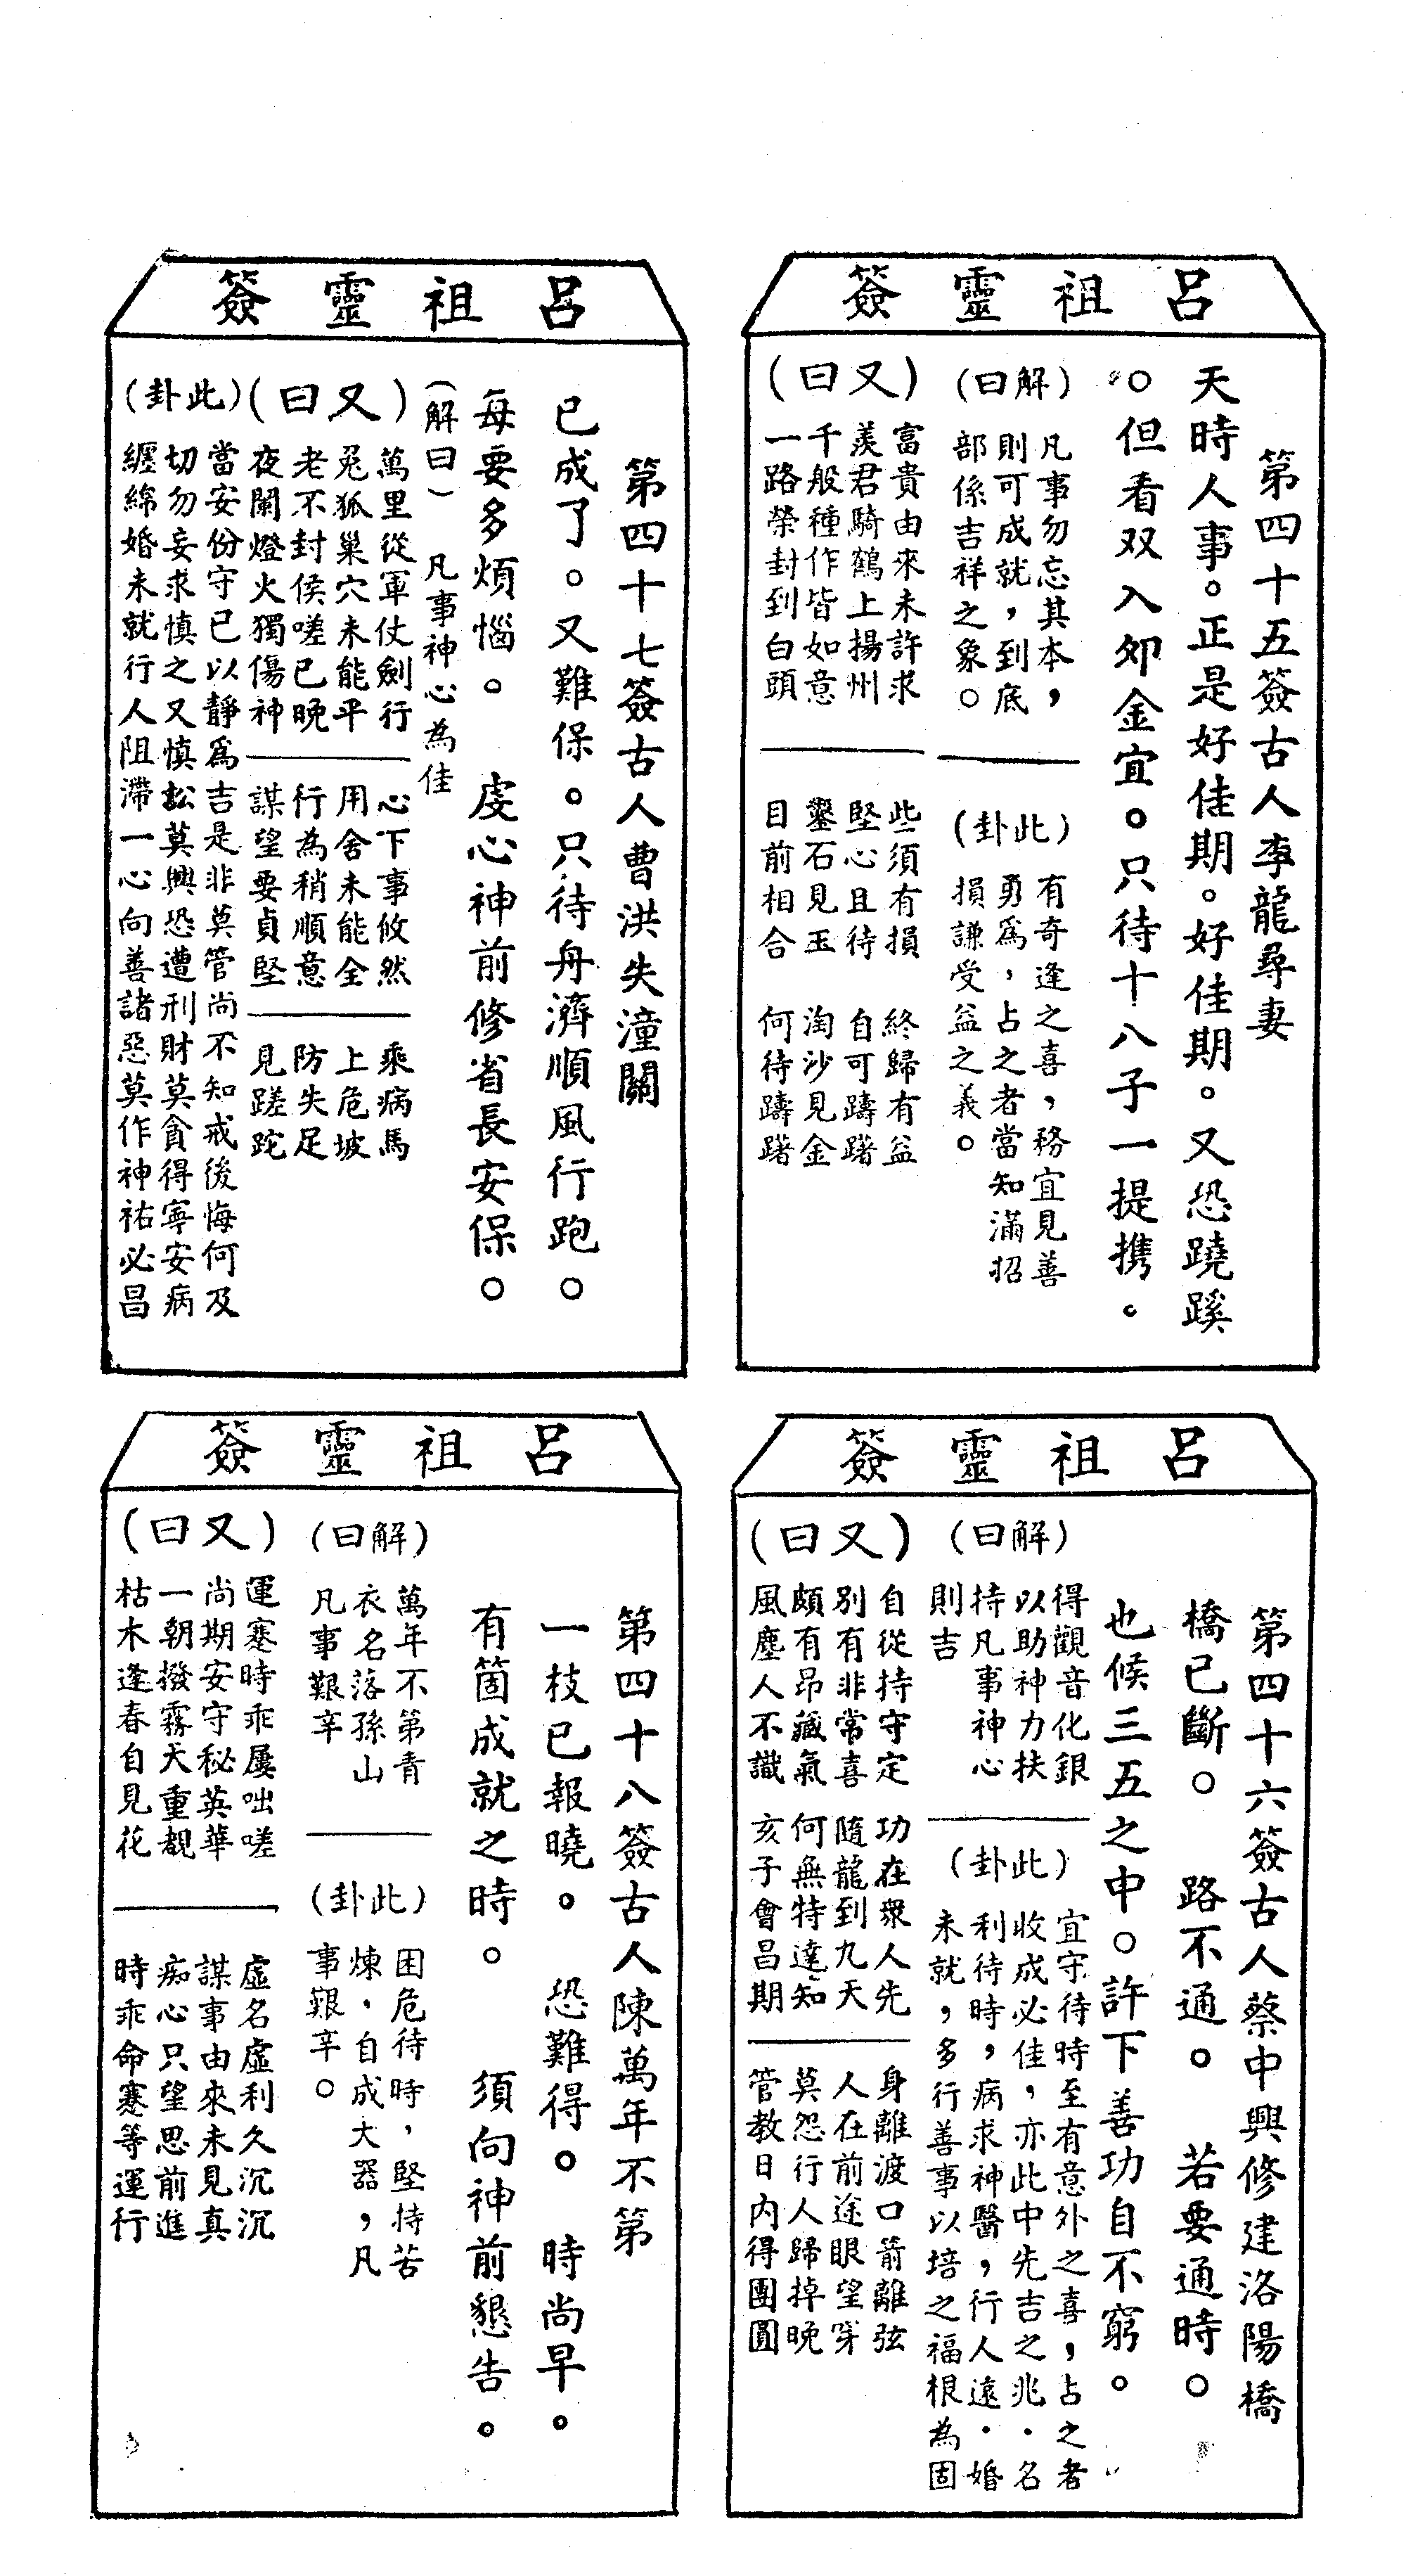 呂祖靈簽
第四十五簽古人李龍尋妻
天時人事。正是好佳期。好佳期。又恐蹺蹊
。但看双入夘金宜。只待十八子一提携。
(解曰)
凡事勿忘其本，
則可成就，到底
部係吉祥之象。
(此卦)
有奇逢之喜，務宜見善
勇為，占之者當知滿招
損謙受益之義。
(又曰)
富貴由來未許求
羨君騎鶴上揚州
千般種作皆如意
一路榮封到白頭
些須有損 終歸有益
堅心且待 自可躊躇
鑿石見玉 淘沙見金
目前相合 何待躊躇
呂祖靈簽
第四十六簽古人蔡中興修建洛陽橋
橋已斷。 路不通。 若要通時。
也候三五之中。許下善功自不窮。
(解曰)
得觀音化銀
以助神力扶
持凡事神心
則吉
(此卦)
宜守待時至有意外之喜，占之者
收成必佳，亦此中先吉之兆．名
利待時，病求神醫，行人遠．婚
未就，多行善事以培之福根為固
(又曰)
自從持守定 功在衆人先
別有非常喜 隨龍到九天
頗有昂藏氣 何無特達知
風塵人不識 亥子會昌期
身離渡口箭離弦
人在前途眼望穿
莫怨行人歸掉晚
管教日內得團圓
呂祖靈簽
第四十七簽古人曹洪失潼關
已成了。又難保。只待舟濟順風行跑。
每要多煩惱。 虔心神前修省長安保。
(解曰) 凡事神心為佳
(又曰)
萬里從軍仗劍行
兎狐巢穴未能平
老不封侯嗟已晚
夜闌燈火獨傷神
心下事攸然
用舍未能全
行為稍順意
謀望要貞堅
乘病馬
上危坡
防失足
見蹉跎
(此卦)
當安份守已以靜爲吉是非莫管尚不知戒後悔何及
切勿妄求慎之又慎訟莫興恐遭刑財莫貪得寧安病
纒綿婚未就行人阻滯一心向善諸惡莫作神祐必昌
呂祖靈簽
第四十八簽古人陳萬年不第
一枝已報曉。 恐難得。 時尚早。
有箇成就之時。 須向神前懇告。
(解曰)
萬年不第青
衣名落孫山
凡事艱辛
(此卦)
困危待時，堅持苦
煉，自成大器，凡
事艱辛。
(又曰)
運蹇時乖屢咄嗟
尚期安守秘英華
一朝撥霧天重覩
枯木逢春自見花
虛名虛利久沉沉
謀事由來未見真
痴心只望思前進
時乖命蹇等運行